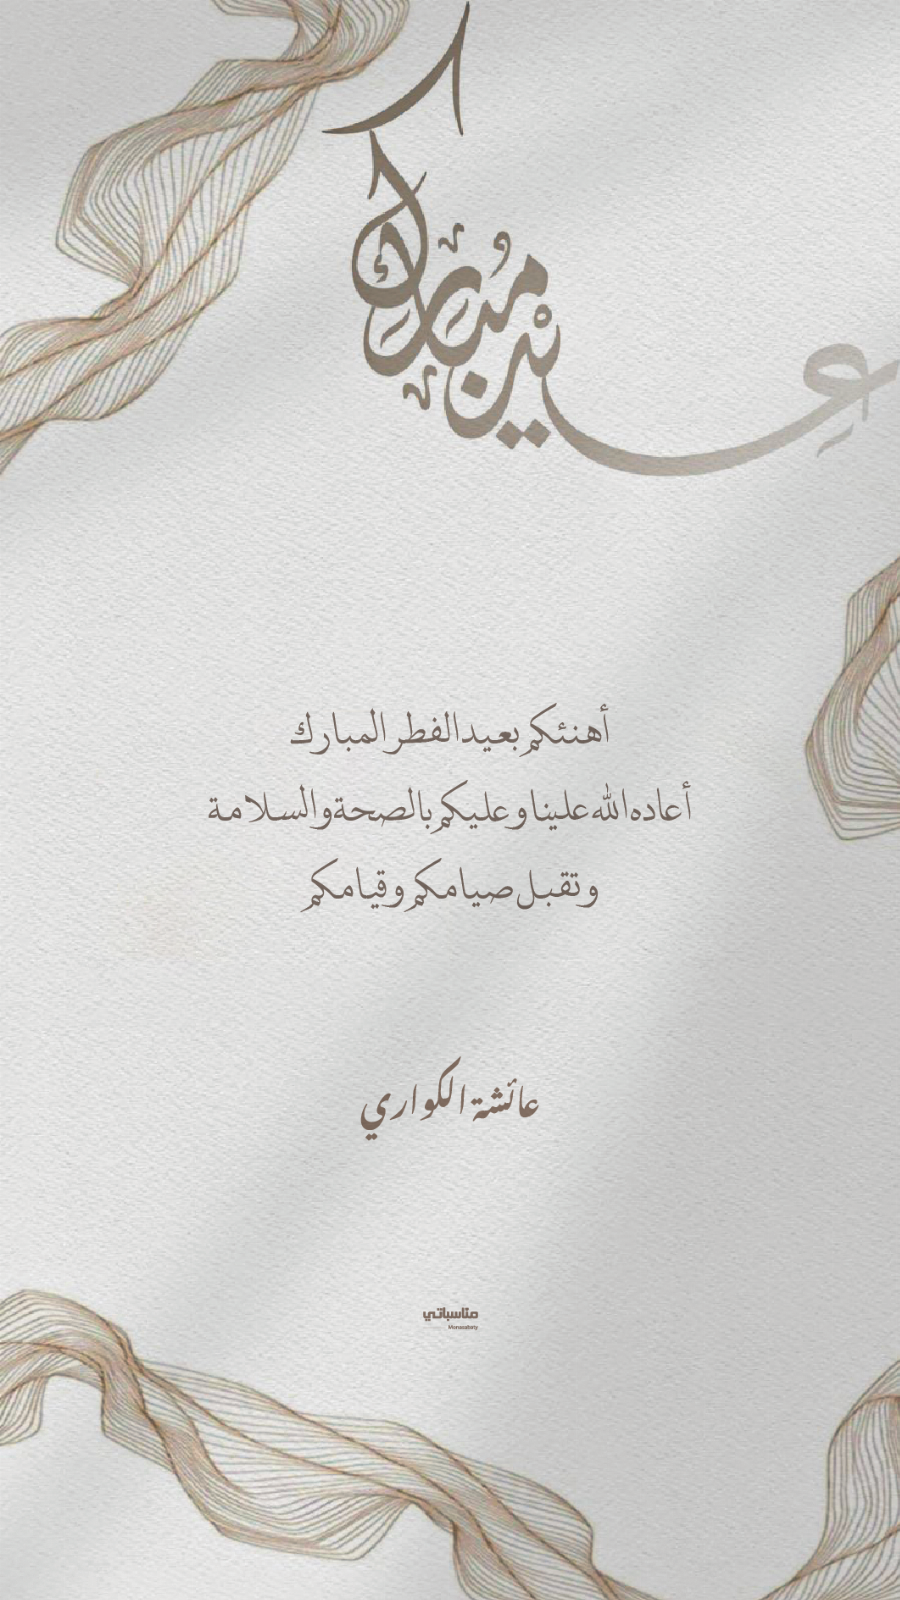 عيد مبارك
أهنئكم بعيد الفطر المبارك
أعاده الله علينا وعليكم بالصحة والسلامة
وتقبل صيامكم وقيامكم
عائشة الكواري
مناسباتي
Monasabaty